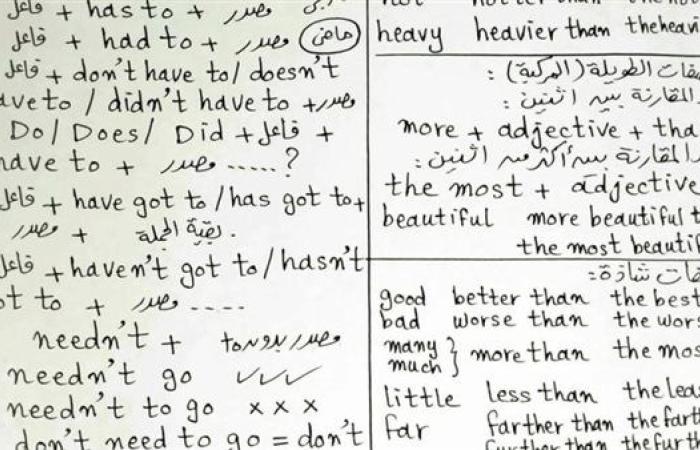 فاعل + has to + مصدر
فاعل + had to + مصدر (ماضى)
فاعل + don't have to / doesn't
ave to / didn't have to + مصدر
Do / Does / Did + فاعل +
have to + مصدر ......?
فاعل + have got to / has got to +
مصدر + بقية الجملة.
فاعل + haven't got to / hasn't
ot to + مصدر .....
needn't + مصدر بدون to
needn't go ✓✓✓
needn't to go x x x
don't need to go = don't
heavy heavier than the heavi
فات الطويلة (المركبة) :
المقارنة بين اثنين :
more + adjective + tha
المقارنة بين أكثر من اثنين :
the most + adjective
beautiful more beautiful t
the most beautif
فات شاذة :
good better than the best
bad worse than the wors
many
much } more than the mos
little less than the lea
far farther than the farth
further than the furth